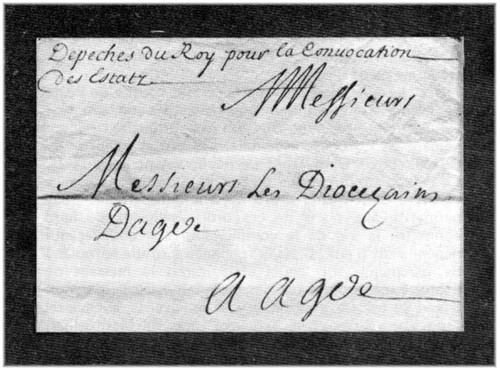 Depeches du Roy pour la Convocation
des Estatz
A Messieurs
Messieurs Les Diocezains
Dagde
A agde